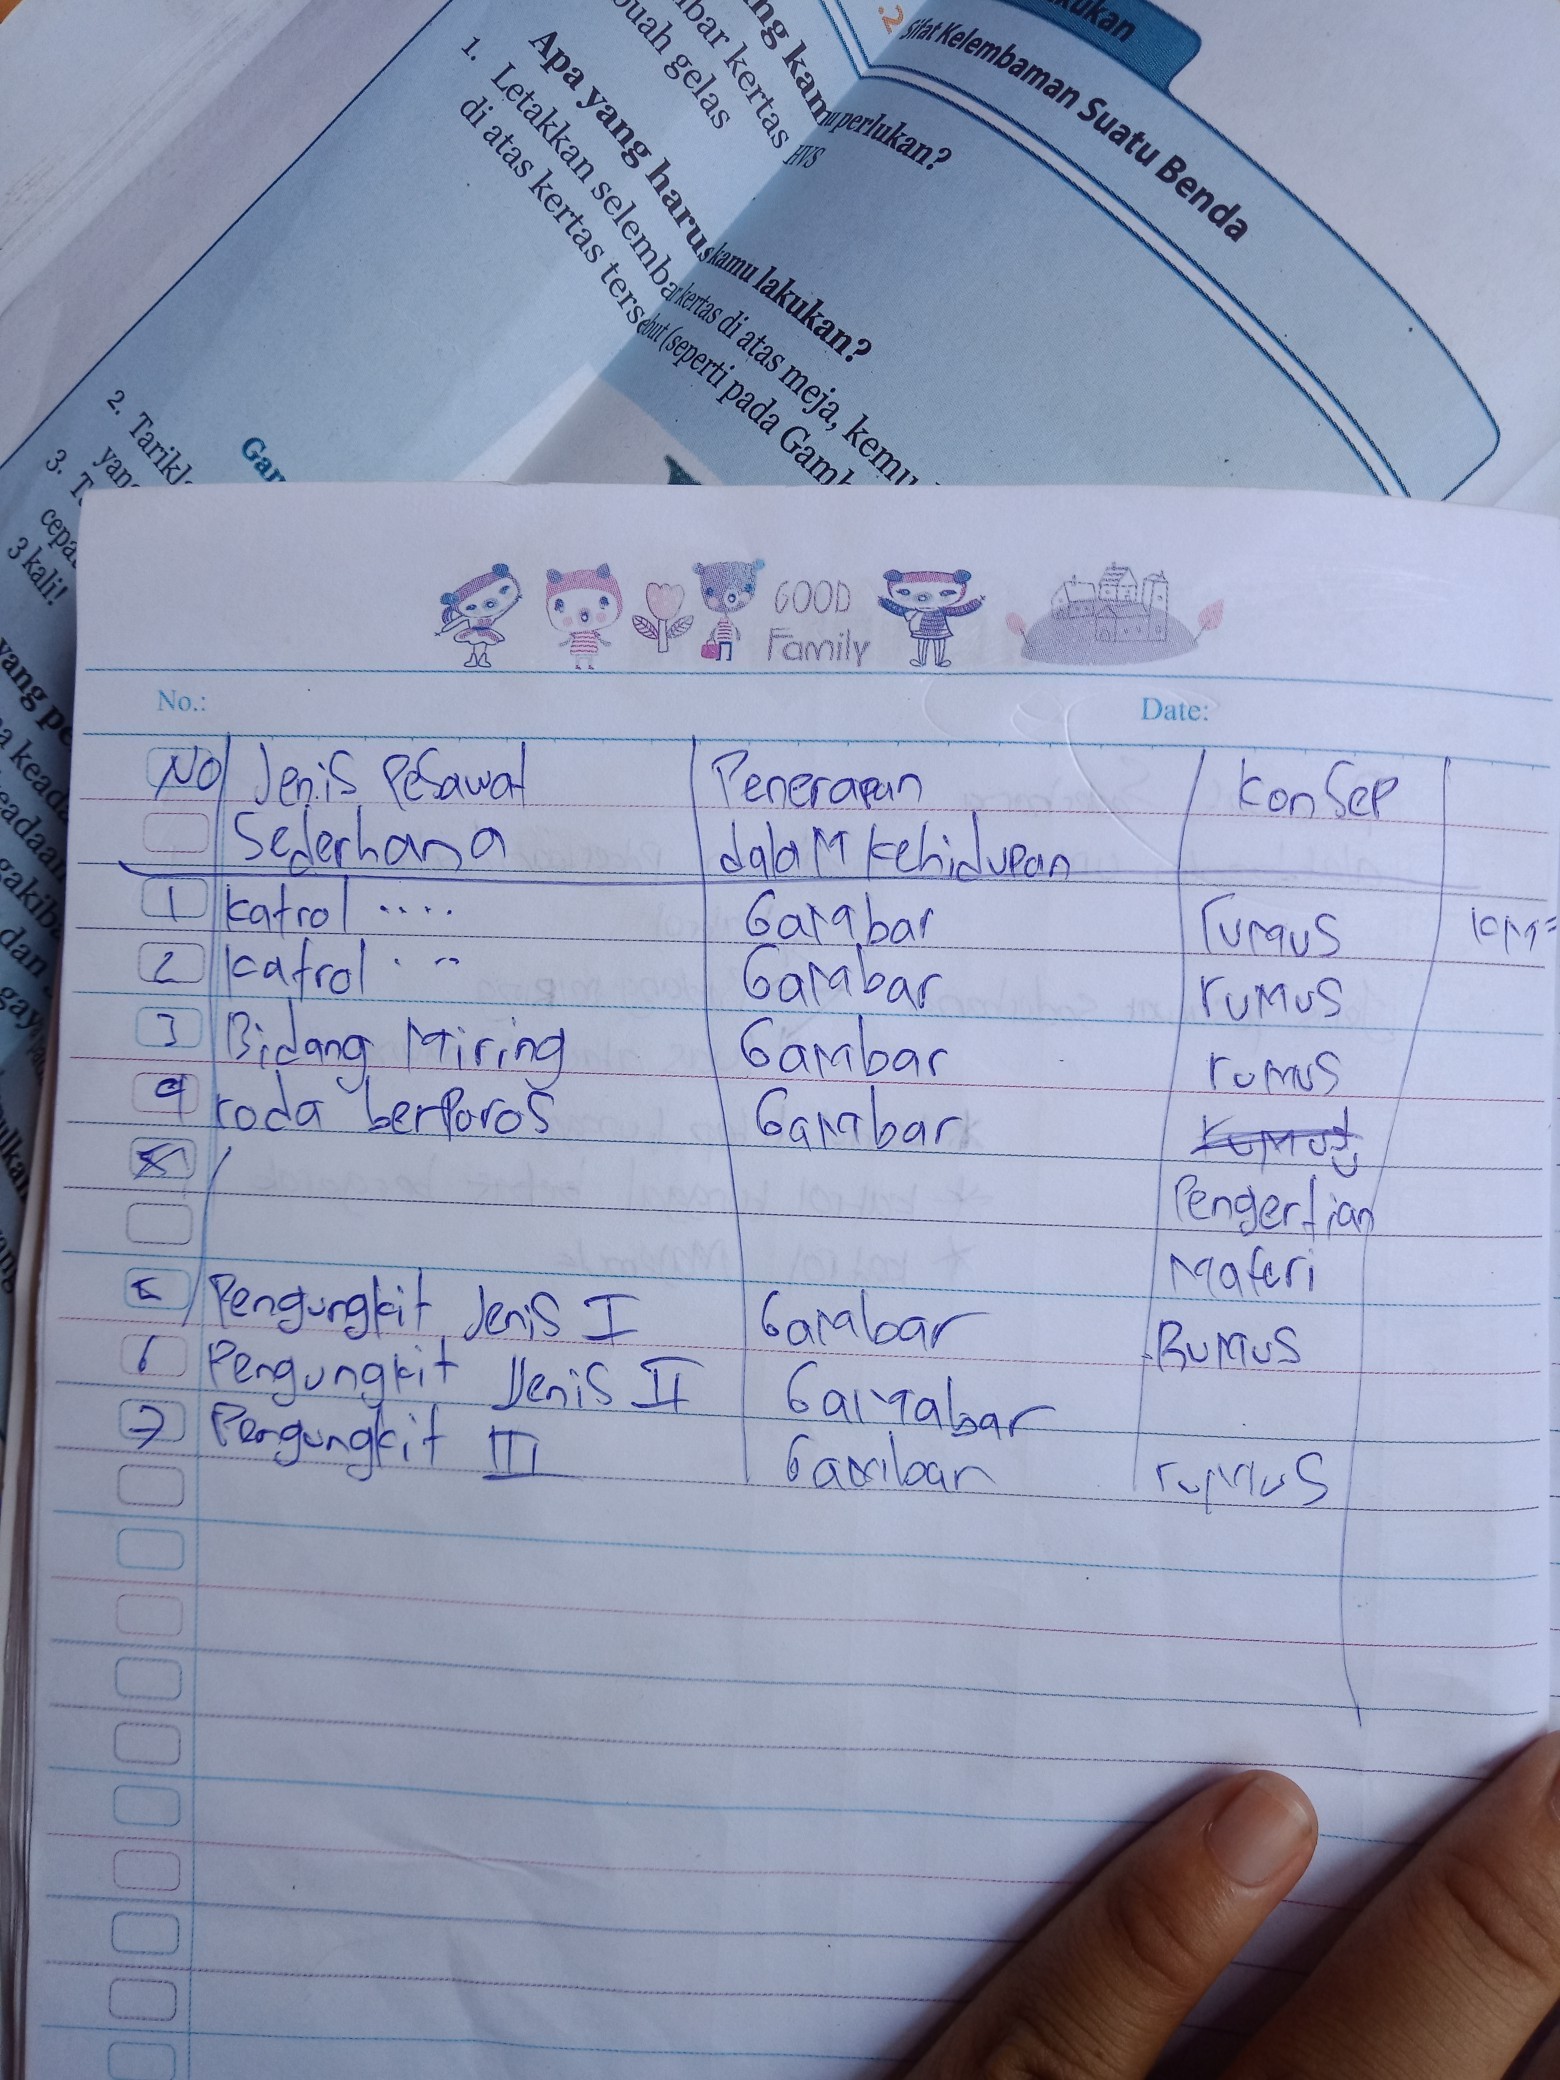 kukan
.2 Sifat Kelembaman Suatu Benda
ng kamu perlukan?
bar kertas HVS
buah gelas
Apa yang harus kamu lakukan?
1. Letakkan selembar kertas di atas meja, kemu
di atas kertas tersebut (seperti pada Gamb
Gan
2. Tarikl
yang
3. T
cepa
3 kali!
yang pe
a keada
keadaan
gakiba
dan
gaya
GOOD
Family
No.:
Date:
No Jenis Pesawat Penerapan Konsep
Sederhana dalam kehidupan
1 katrol .... Gambar rumus KM=
2 katrol ... Gambar rumus
3 Bidang Miring Gambar rumus
4 roda berporos Gambar rumus
Pengertian
Materi
5 Pengungkit Jenis I Gambar Rumus
6 Pengungkit Jenis II Gambar
7 Pengungkit III Gambar rumus